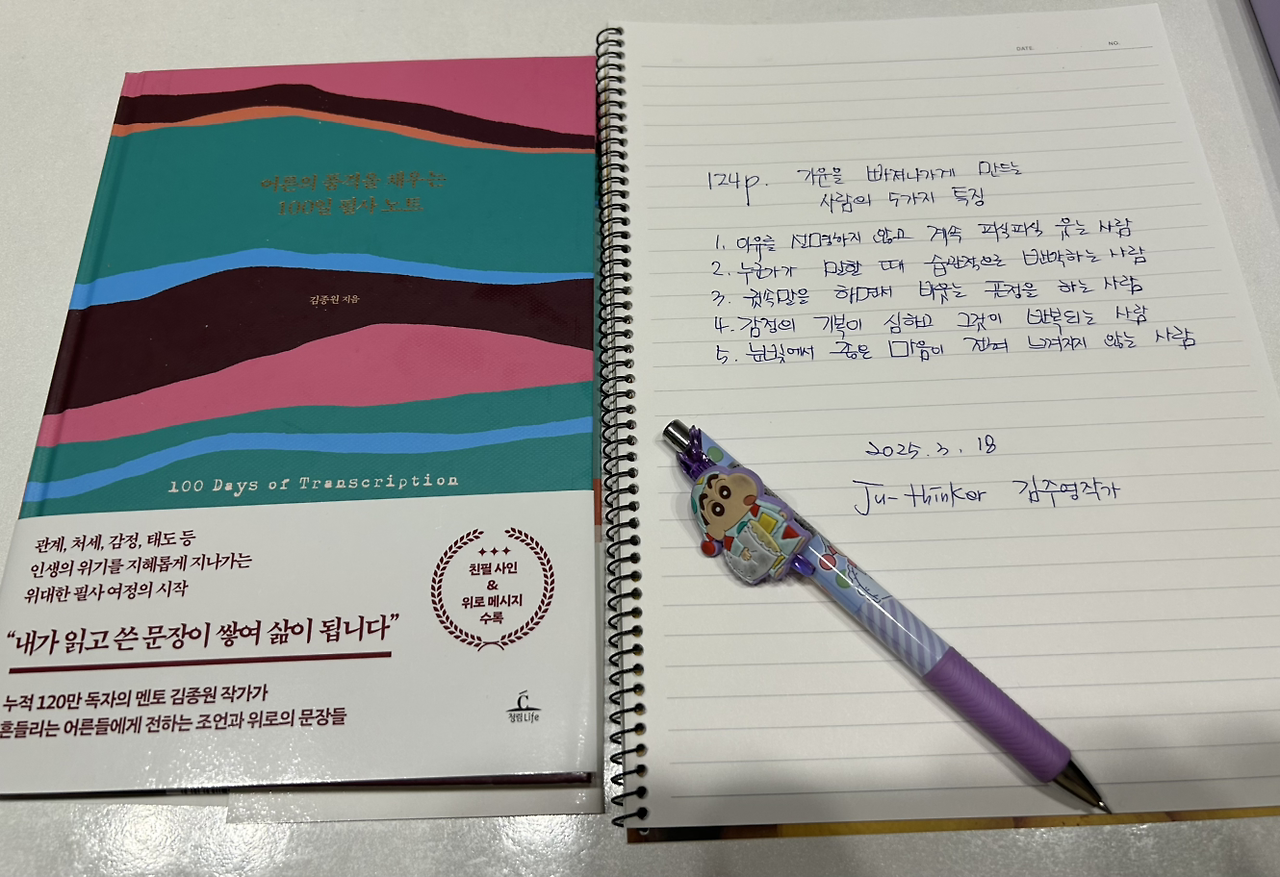 어른의 품격을 채우는
100일 필사 노트
김종원 지음
100 Days of Transcription
관계, 처세, 감정, 태도 등
인생의 위기를 지혜롭게 지나가는
위대한 필사 여정의 시작
“내가 읽고 쓴 문장이 쌓여 삶이 됩니다”
누적 120만 독자의 멘토 김종원 작가가
흔들리는 어른들에게 전하는 조언과 위로의 문장들
친필 사인
&
위로 메시지
수록
청림Life
DATE. NO.
124p. 기운을 빠져나가게 만드는
사람의 5가지 특징
1. 이유를 설명하지 않고 계속 피식피식 웃는 사람
2. 누군가가 말할 때 습관적으로 반박하는 사람
3. 귓속말을 하면서 비웃는 표정을 하는 사람
4. 감정의 기복이 심하고 그것이 반복되는 사람
5. 눈빛에서 좋은 마음이 전혀 느껴지지 않는 사람
2025. 3. 18
Ju-thinker 김주영작가